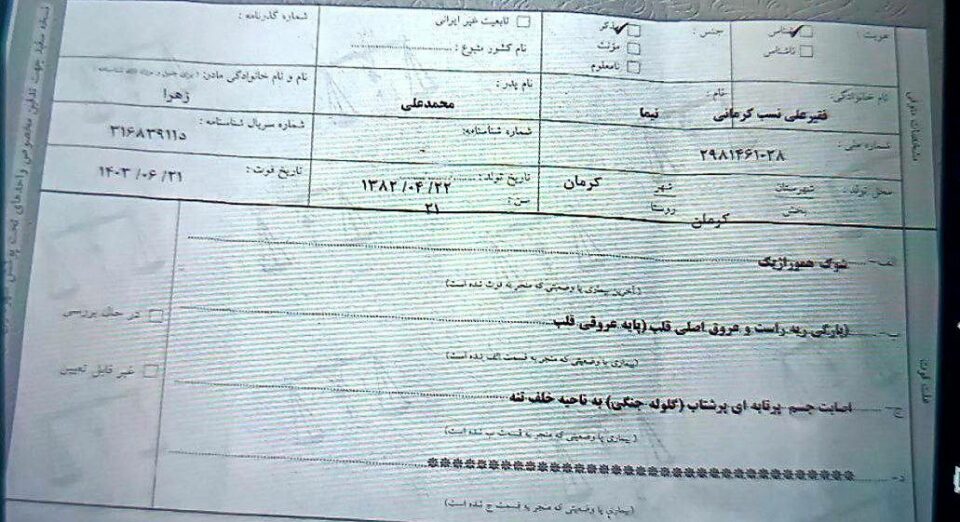 هویت :
شناس
ناشناس
جنس :
مذکر
مؤنث
نامعلوم
تابعیت غیر ایرانی
نام کشور متبوع :
شماره گذرنامه :
نام خانوادگی:
فقیرعلی نسب کرمانی
نام :
نیما
نام پدر:
محمدعلی
نام و نام خانوادگی مادر:
زهرا
شماره ملی :
۲۹۸۱۴۶۱۰۲۸
شماره شناسنامه:
شماره سریال شناسنامه :
۳۱۶۸۳۹۱۱۵
محل تولد :
شهرستان
شهر
کرمان
بخش
روستا
کرمان
تاریخ تولد :
۱۳۸۲/۰۴/۲۲
سن :
۲۱
تاریخ فوت :
۱۴۰۳/۰۶/۳۱
الف- شوک هموراژیک
(آخرین بیماری یا وضعیتی که منجر به فوت شده است)
ب- (پارگی ریه راست و عروق اصلی قلب (پایه عروقی قلب
(بیماری یا وضعیتی که منجر به قسمت الف شده است)
ج- اصابت جسم پرتابه ای پرشتاب (گلوله جنگی) به ناحیه خلف تنه
(بیماری یا وضعیتی که منجر به قسمت ب شده است)
د-
(بیماری یا وضعیتی که منجر به قسمت ج شده است)
در حال بررسی
غیر قابل تعیین
علت فوت